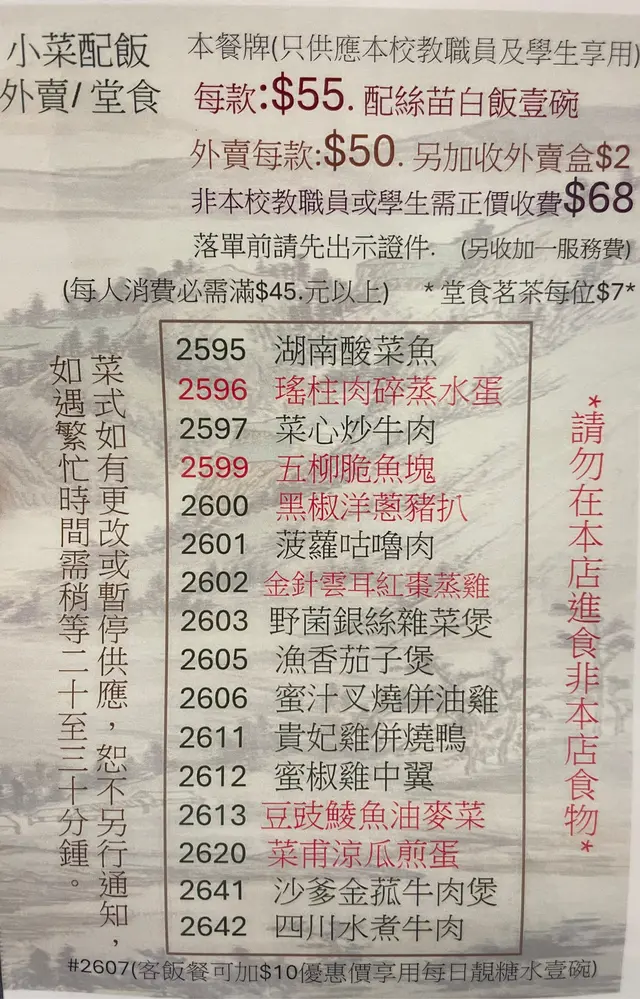 小菜配飯
外賣/堂食
本餐牌(只供應本校教職員及學生享用)
每款:$55. 配絲苗白飯壹碗
外賣每款:$50. 另加收外賣盒$2
非本校教職員或學生需正價收費$68
落單前請先出示證件. (另收加一服務費)
(每人消費必需滿$45.元以上) *堂食茗茶每位$7*
2595 湖南酸菜魚
2596 瑤柱肉碎蒸水蛋
2597 菜心炒牛肉
2599 五柳脆魚塊
2600 黑椒洋蔥豬扒
2601 菠蘿咕嚕肉
2602 金針雲耳紅棗蒸雞
2603 野菌銀絲雜菜煲
2605 漁香茄子煲
2606 蜜汁叉燒併油雞
2611 貴妃雞併燒鴨
2612 蜜椒雞中翼
2613 豆豉鯪魚油麥菜
2620 菜甫涼瓜煎蛋
2641 沙爹金菰牛肉煲
2642 四川水煮牛肉
*請勿在本店進食非本店食物*
菜式如有更改或暫停供應，恕不另行通知，
如遇繁忙時間需稍等二十至三十分鍾。
#2607(客飯餐可加$10優惠價享用每日靚糖水壹碗)